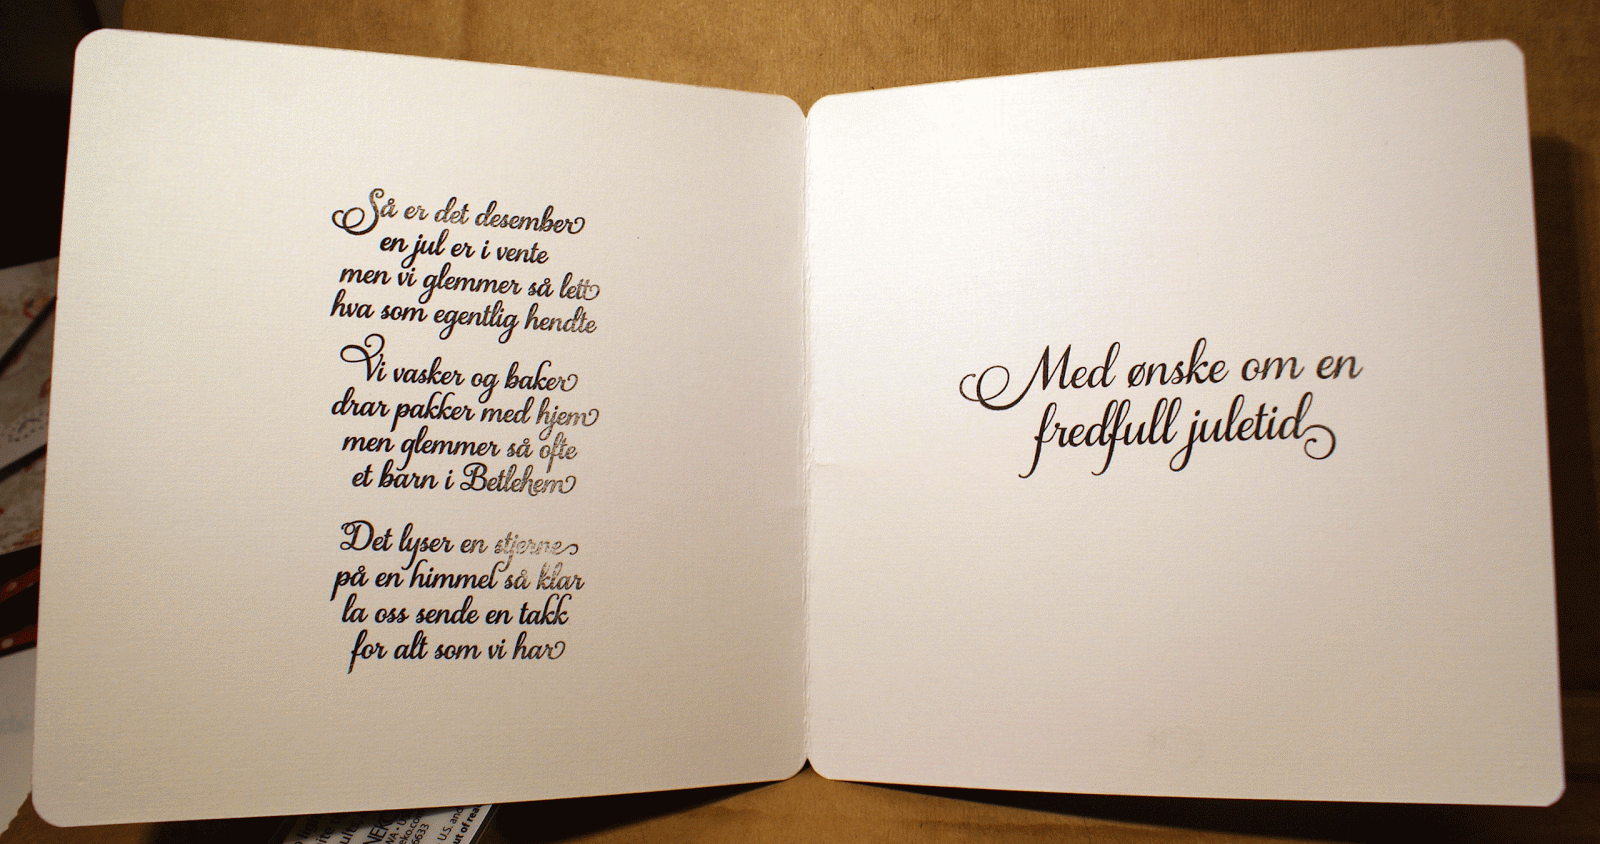 Så er det desember
en jul er i vente
men vi glemmer så lett
hva som egentlig hendte
Vi vasker og baker
drar pakker med hjem
men glemmer så ofte
et barn i Betlehem
Det lyser en stjerne
på en himmel så klar
la oss sende en takk
for alt som vi har
Med ønske om en
fredfull juletid
U.S. and
6633